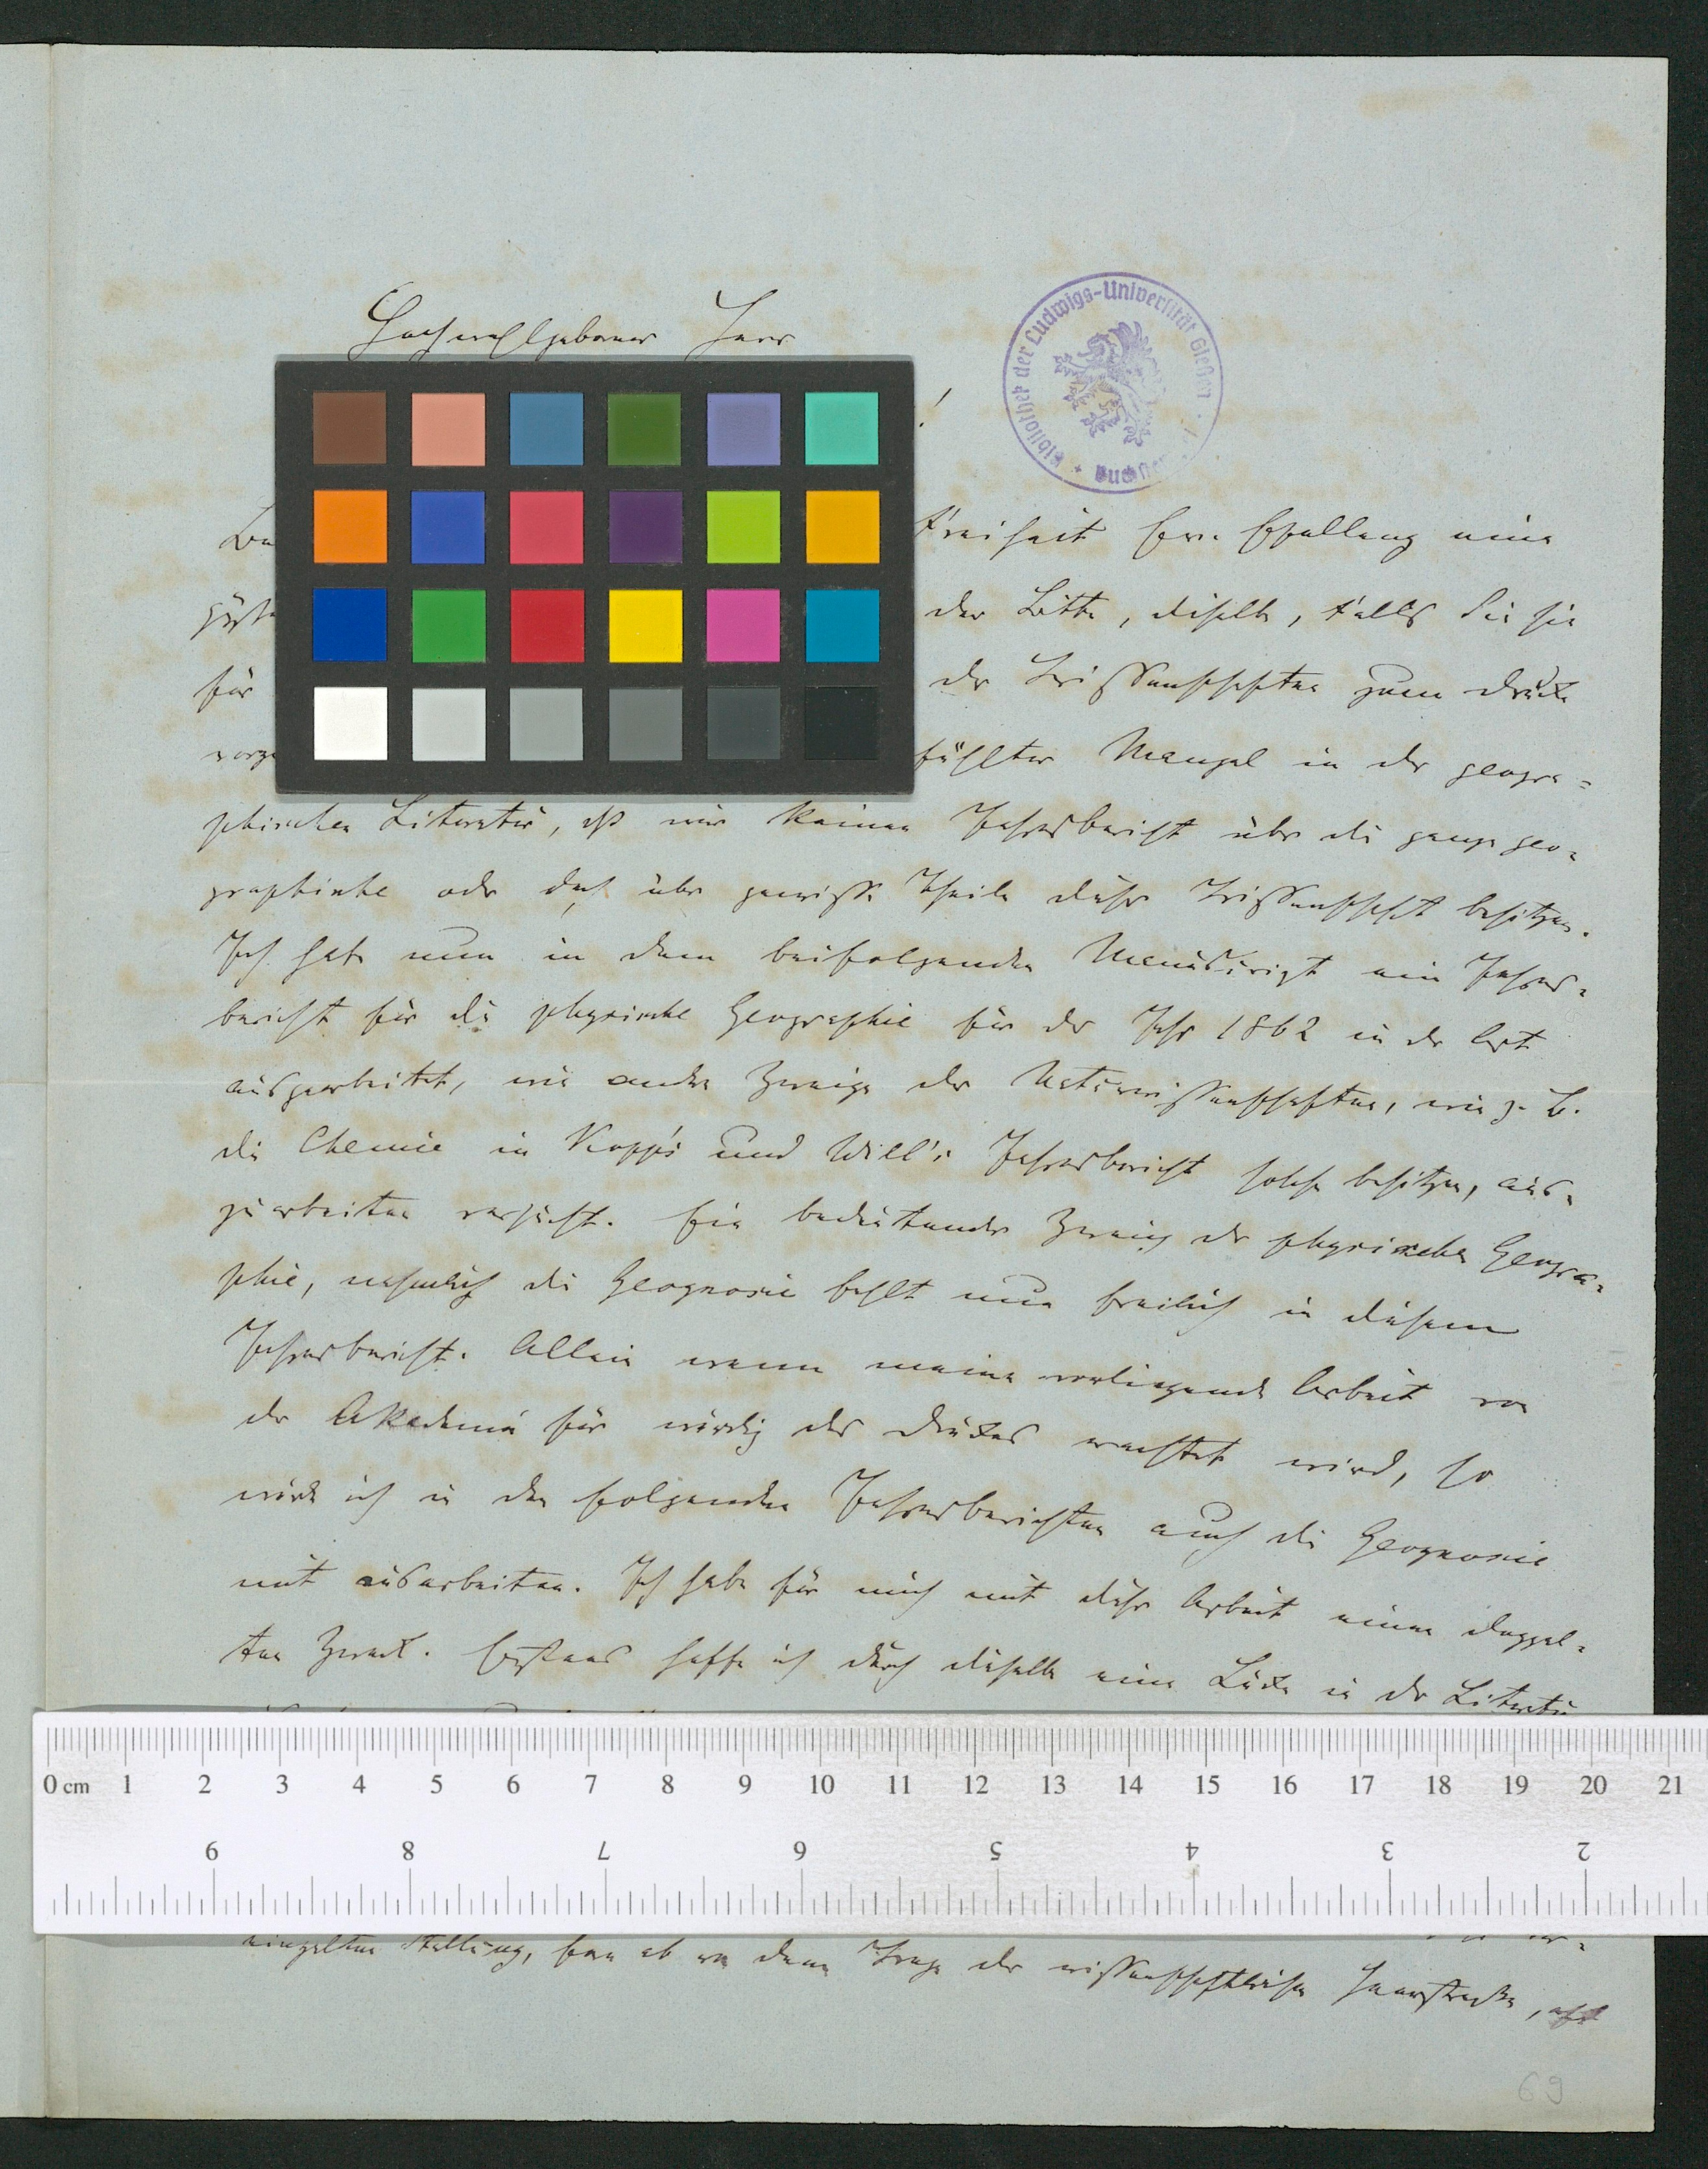 Hochwohlgeborner Herr
!
Bibliothek der Ludwigs-Universität Gießen
Freiheit Ew. Exellenz eine
der Bitte, diselbe, falls Sie sie
für der Wissenschaften zum Drucke
fühlter Mangel in der geogra-
phischen Literatur, daß wir keinen Jahresbericht über die ganze geo-
graphische oder doch über gewisse Theile dieser Wissenschaft besitzen.
Ich habe nun in dem beifolgenden Manuscript ein Jahres-
bericht für die physische Geographie für das Jahr 1862 in der Art
ausgearbeitet, wie andre Zweige der Naturwissenschaften, wie z. B.
die Chemie in Kopp's und Will's Jahresbericht solche besitzen, aus-
zuarbeiten versucht. Ein bedeutender Zweig der physischen Geogra-
phie, nehmlich die Geognosie fehlt nun freilich in diesem
Jahresbericht. Allein wenn meine vorliegende Arbeit von
der Akademie für würdig des Druckes erachtet wird, so
würde ich in den folgenden Jahresberichten auch die Geognosie
mit ausarbeiten. Ich habe für mich mit dieser Arbeit einen doppel-
ten Zweck. Erstens hoffe ich durch dieselbe eine Lücke in der Literatur
0 cm 1 2 3 4 5 6 7 8 9 10 11 12 13 14 15 16 17 18 19 20 21
9 8 7 6 5 4 3 2
Stellung, fern ab von dem Wege der wissenschaftlichen Heerstraße,
69